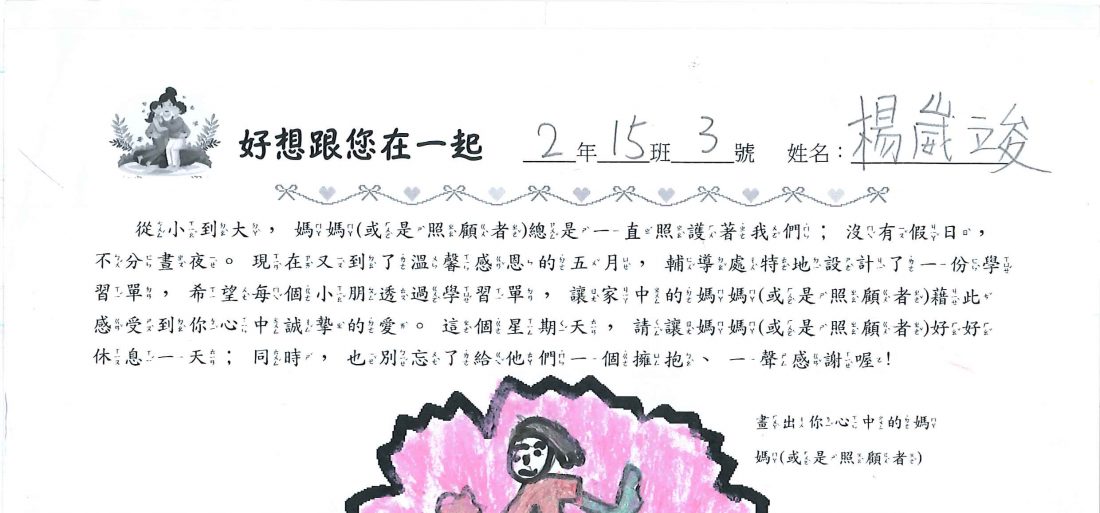 好想跟您在一起 2年15班3號 姓名：楊崴竣
從小到大，媽媽(或是照顧者)總是一直照護著我們；沒有假日，
不分晝夜。現在又到了溫馨感恩的五月，輔導處特地設計了一份學
習單，希望每個小朋透過學習單，讓家中的媽媽(或是照顧者)藉此
感受到你心中誠摯的愛。這個星期天，請讓媽媽(或是照顧者)好好
休息一天；同時，也別忘了給他們一個擁抱、一聲感謝喔！
畫出你心中的媽
媽(或是照顧者)